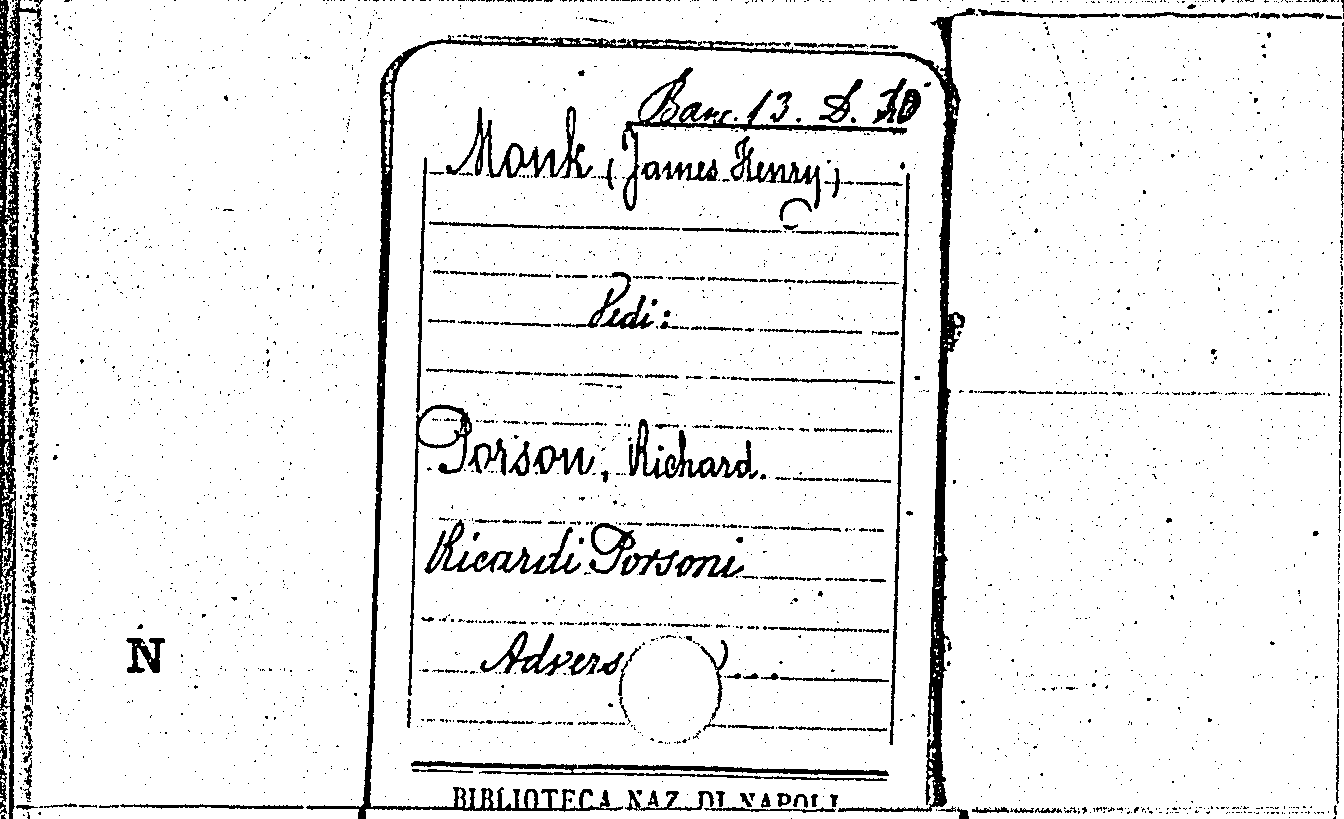 Banc. 13. D. 10
Monk (James Henry)
Vedi:
Porson, Richard.
Ricardi Porsoni
Advers ...
N
BIBLIOTECA NAZ. DI NAPOLI